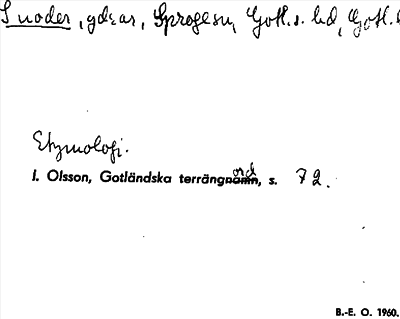 Snoder, gdear, Sprogesu, Gotl. s. hd, Gotl.
Etymologi.
ord
I. Olsson, Gotländska terrängnamn, s. 72.
B.-E. O. 1960.